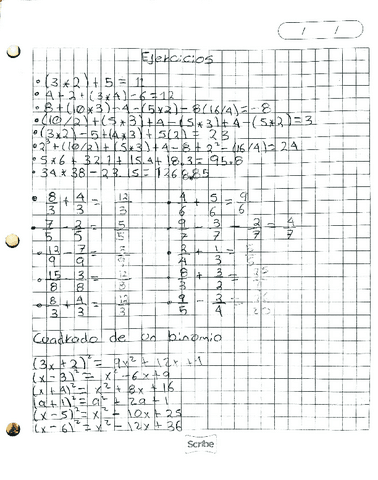 Ejercicios
• (3*2)+5 = 11
• 4+2+(3*4)-6=12
• 8+(10*3)-4-(5*2)-8(16/4)=-8
• (10/2)+(5*3)+4-(5*3)+4-(5*2)=3
• (3*2)-5+(4*3)+5(2)= 23
• 2²+(10/2)+(5*3)+4-8+2²-(16/4)=24
• 5*6+32.1+15.4+18.3= 95.8
• 34*38-23.15=1268.85
• 8/3 + 4/3 = 12/3 • 4/6 + 5/6 = 9/6
• 7/5 - 2/5 = 5/5 • 9/7 - 3/7 - 2/7 = 4/7
• 12/9 - 7/9 = 5/9 • 2/4 + 1/3 =
• 15/8 - 3/8 = • 8/3 + 3/2 =
• 8/3 + 4/3 = 12/3 • 9/5 - 3/4 =
Cuadrado de un binomio
(3x+2)² = 9x² + 12x + 4
(x-3)² = x² - 6x + 9
(x+4)² = x² + 8x + 16
(a+1)² = a² + 2a + 1
(x-5)² = x² - 10x + 25
(x-6)² = x² - 12x + 36
Scribe